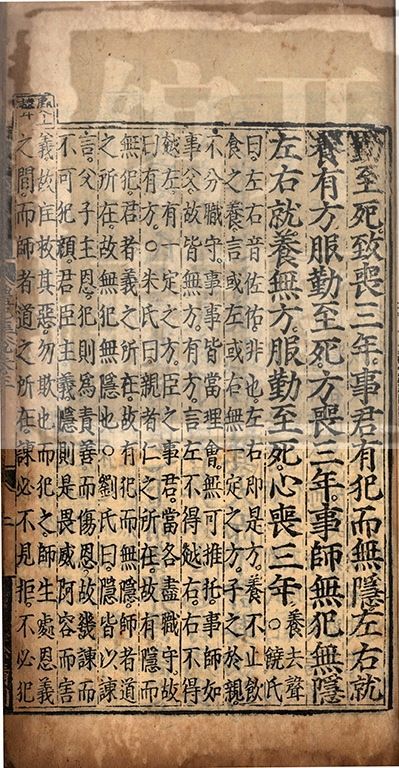 勤至死。致喪三年。事君有犯而無隱。左右就
養有方。服勤至死。方喪三年。事師無犯無隱
左右就養無方。服勤至死。心喪三年。養去聲○饒氏
曰。左右音佐佑非也。左右即是方。養不止飲
食之養。言或左或右無一定之方。子之於親
不分職守。事事皆當理會。無可推托。事師如
事父。故皆無方。有方言左不得越右。右不得
越左。有一定之方。臣之事君。當各盡職守。故
曰有方。○朱氏曰。親者仁之所在。故有隱而
無犯。君者義之所在。故有犯而無隱。師者道
之所在。故無犯無隱也。○劉氏曰。隱皆以諫
言。父子主恩。犯則爲責善而傷恩。故幾諫而
不可犯顏。君臣主義。隱則是畏威阿容而害
義。故匡救其惡。勿欺也而犯之。師生處恩義
之間而師者道之所在。諫必不見拒。不必犯